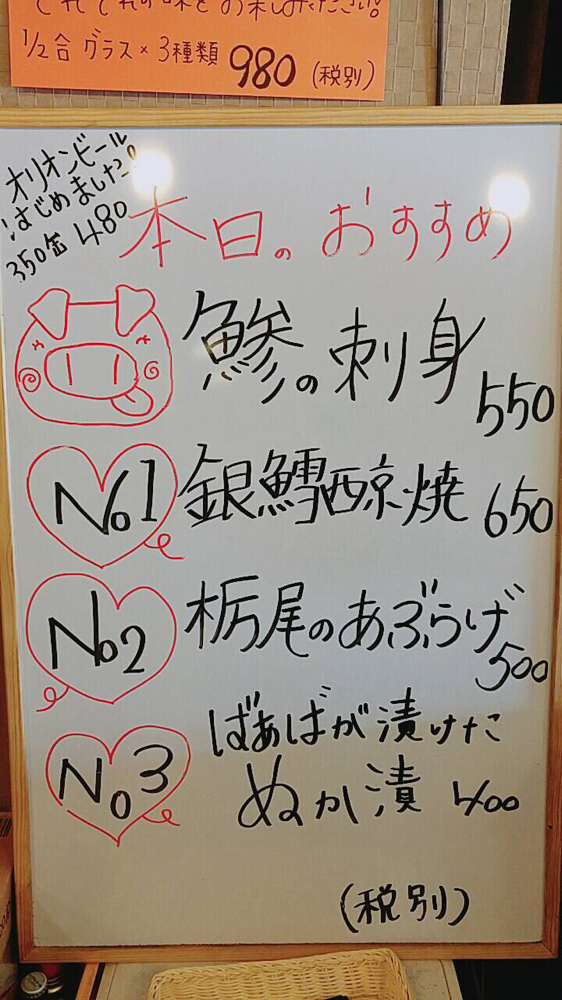 それぞれの味をお楽しみください!
1/2合 グラス×3種類 980 (税別)
オリオンビール
はじめました!
350缶 480
本日のおすすめ
鯵の刺身 550
No1 銀鱈西京焼 650
No2 栃尾のあぶらげ 500
No3 ばあばが漬けた
ぬか漬 400
(税別)